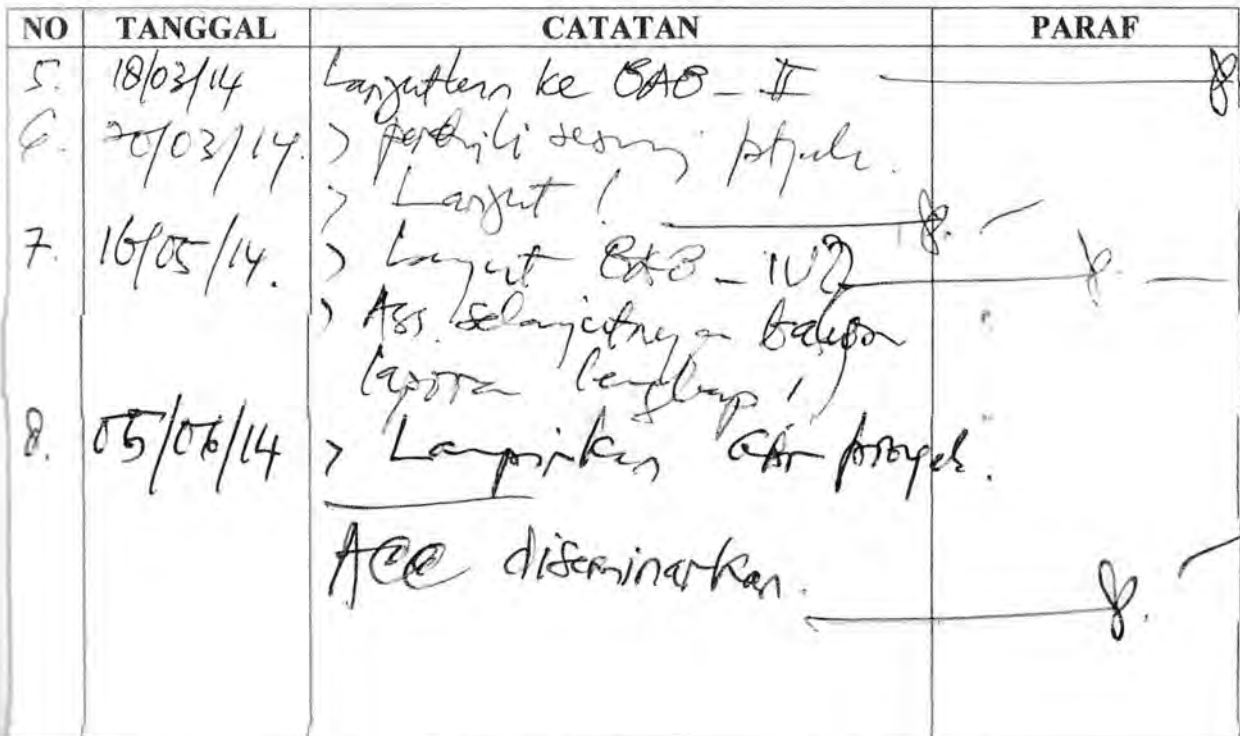 NO TANGGAL CATATAN PARAF
5. 18/03/14 Lanjutkan ke BAB - II
6. 20/03/14. > perbaiki sesuai
> Lanjut !
7. 16/05/14. > Lanjut BAB - IV
> Ass. selanjutnya
laporan lengkap !
8. 05/06/14 > Lampirkan Gbr proyek.
ACC diseminarkan.